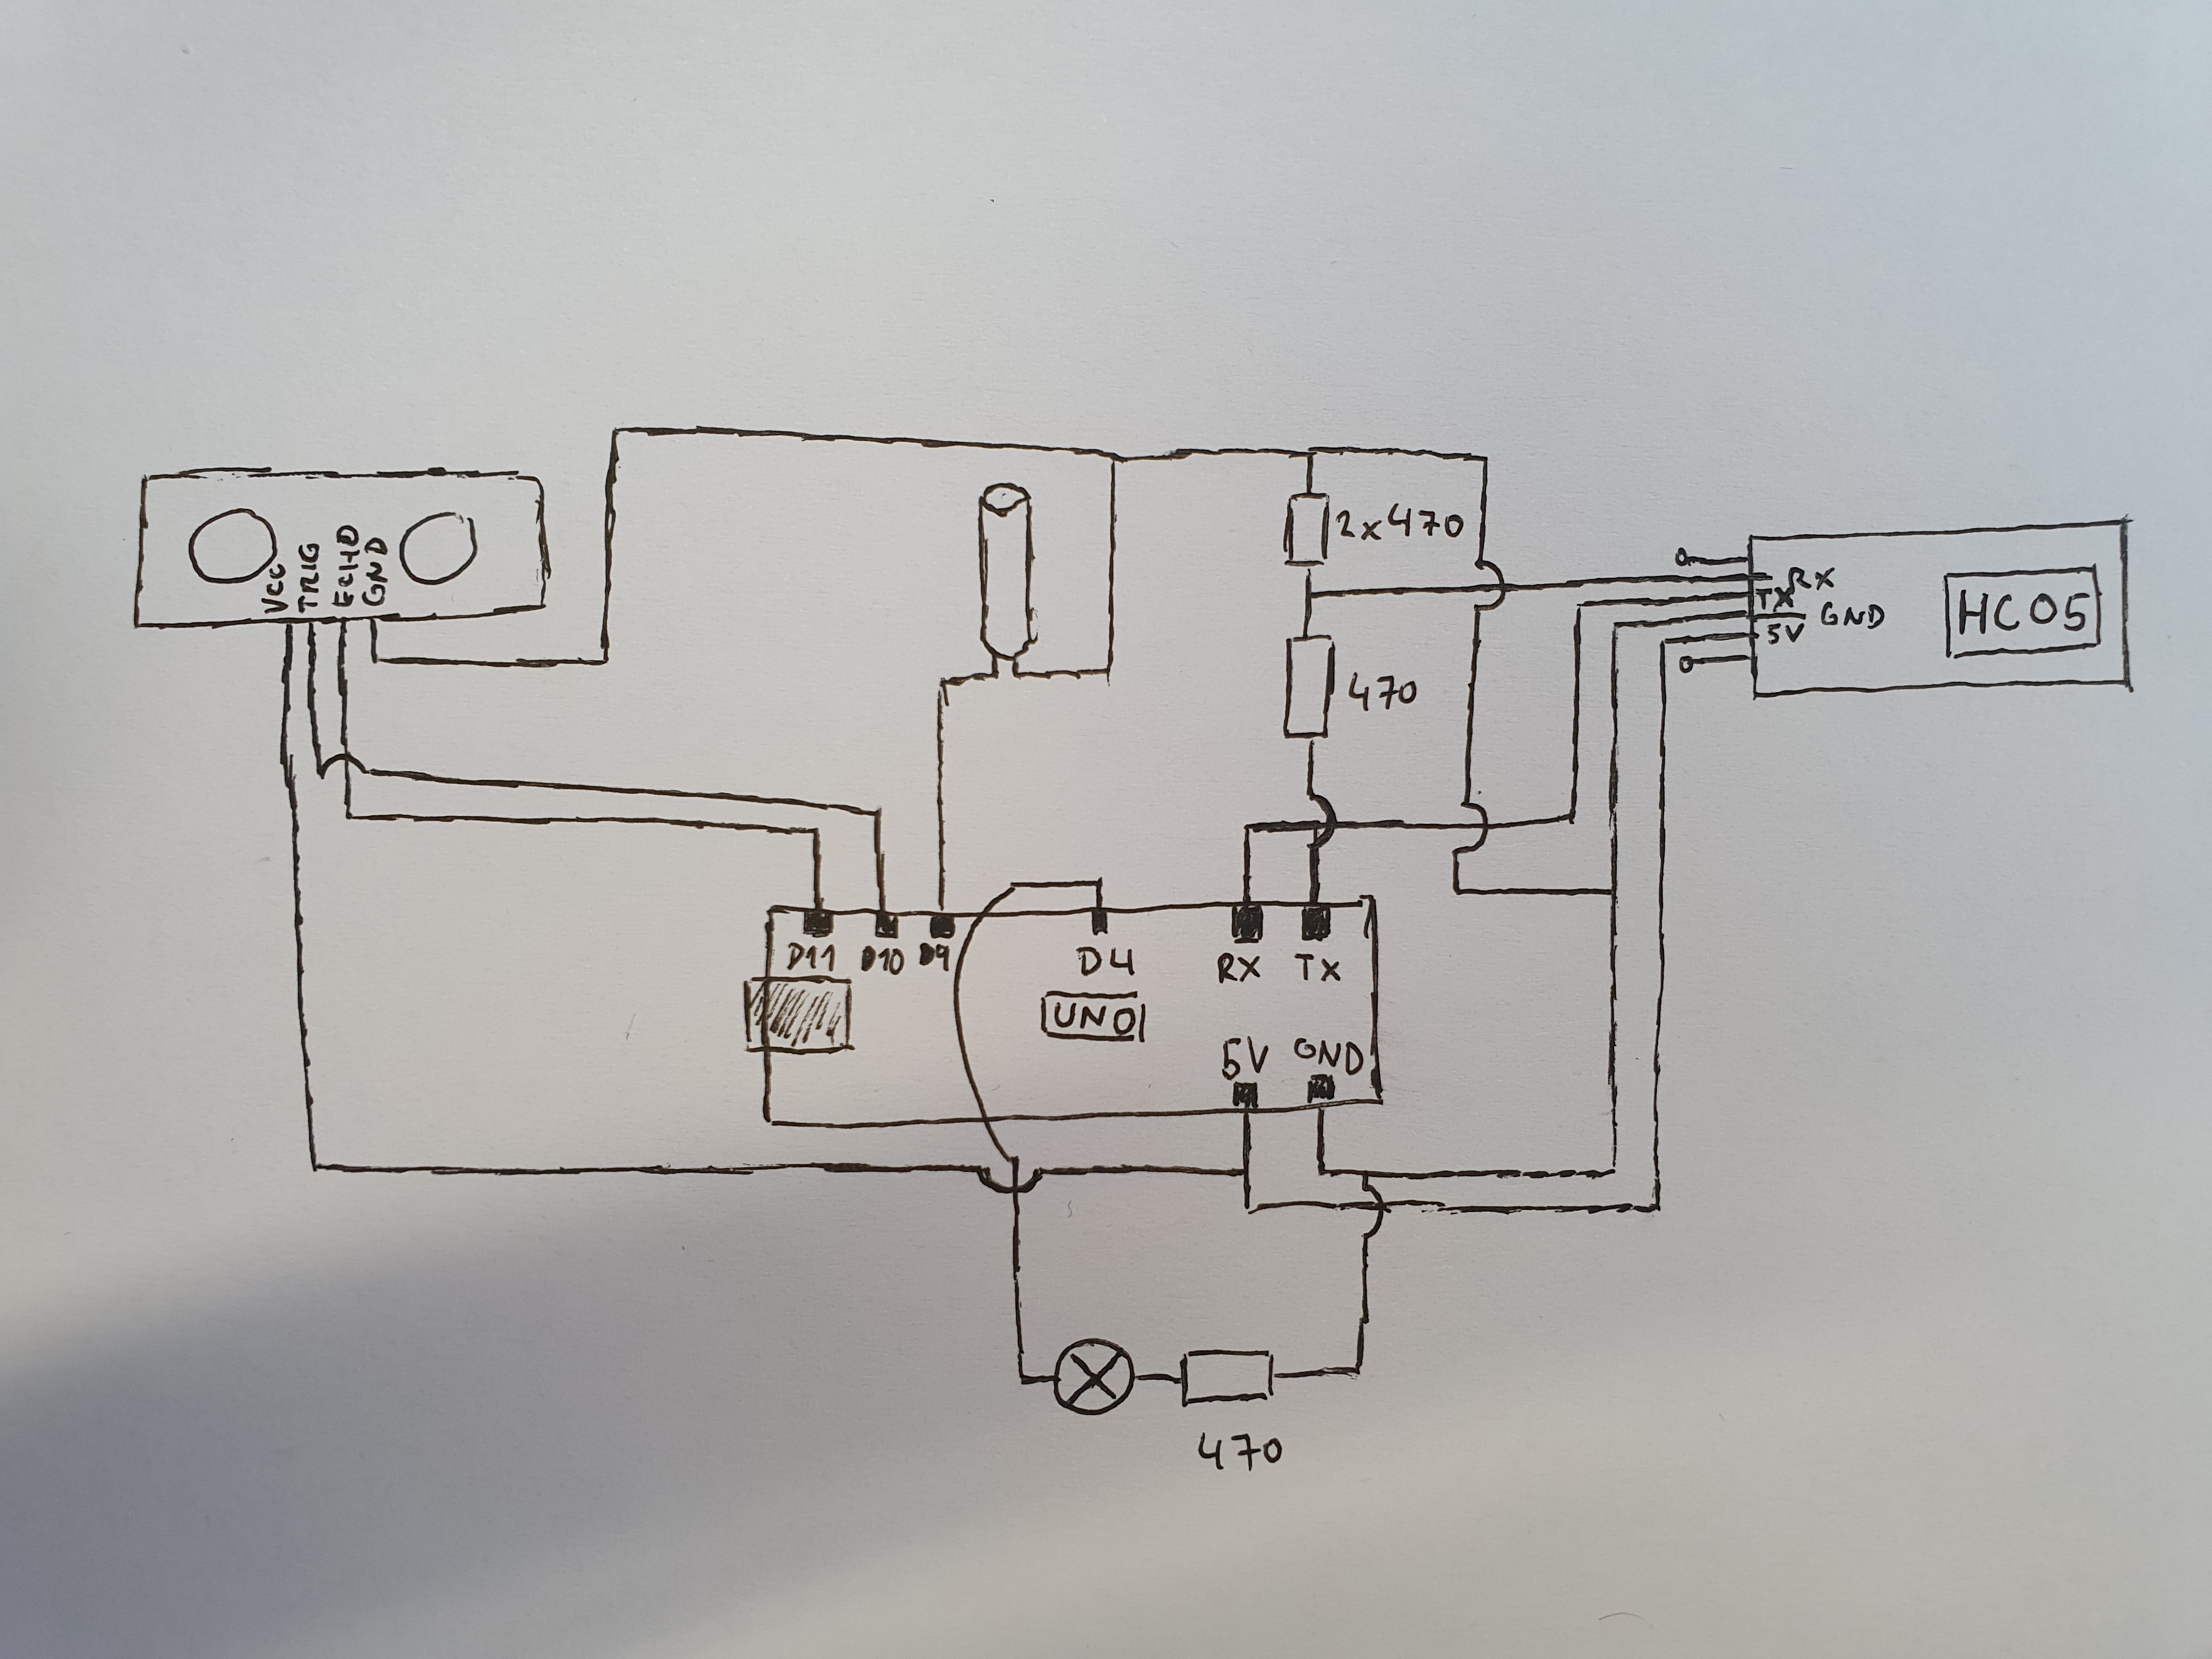 VCC
TRIG
ECHO
GND
2x470
470
RX
TX
GND
5V
HC05
D11 D10 D9 D4 RX TX
UNO
5V GND
470